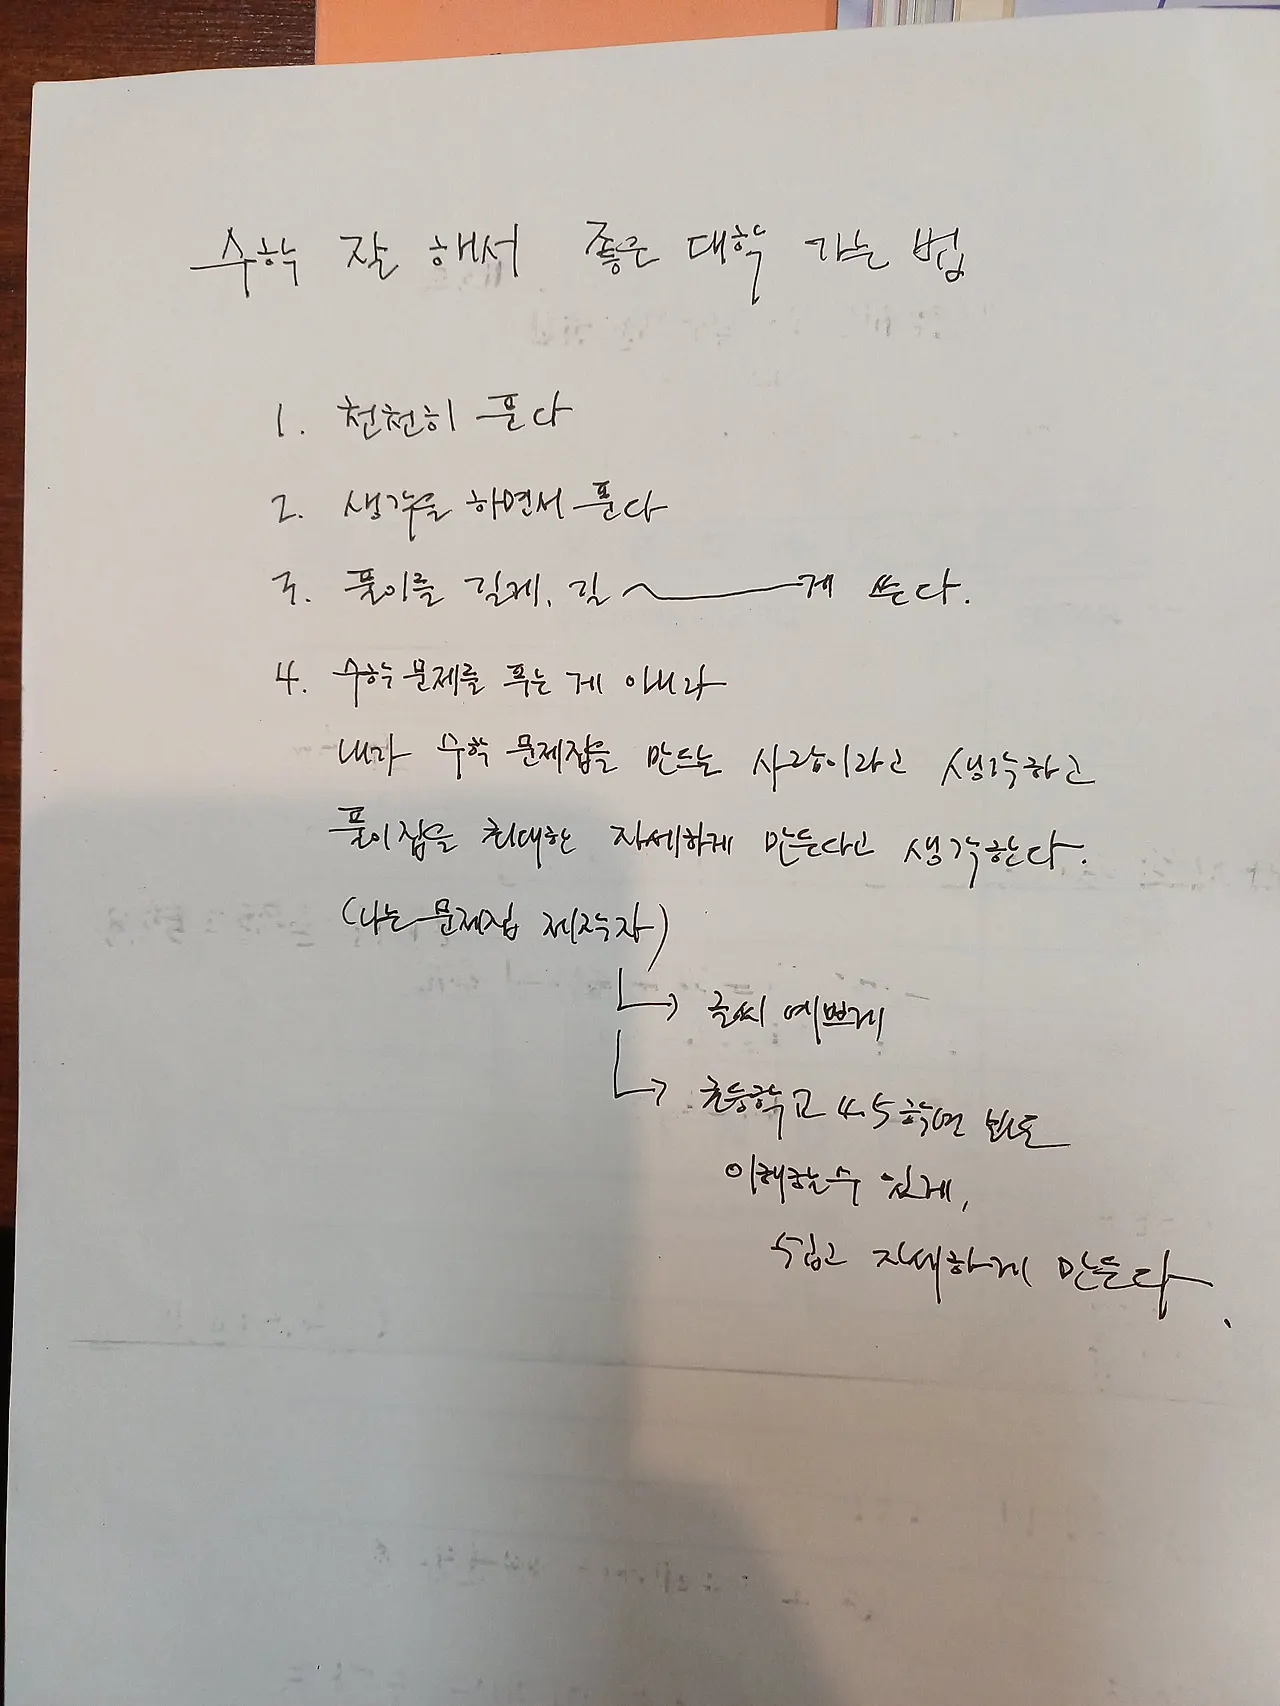 수학 잘 해서 좋은 대학 가는 법
1. 천천히 푼다
2. 생각을 하면서 푼다
3. 풀이를 길게, 길~게 쓴다.
4. 수학 문제를 푸는 게 아니라
내가 수학 문제집을 만드는 사람이라고 생각하고
풀이집을 최대한 자세하게 만든다고 생각한다.
(나는 문제집 제작자)
→ 글씨 예쁘게
→ 초등학교 4.5학년 봐도
이해할수 있게,
쉽고 자세하게 만든다.